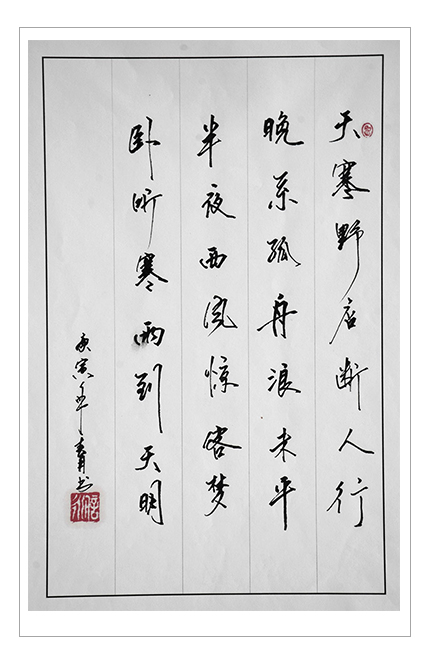 天寒野店断人行
晚系孤舟浪未平
半夜西风惊客梦
卧听寒雨到天明
庚寅年青书